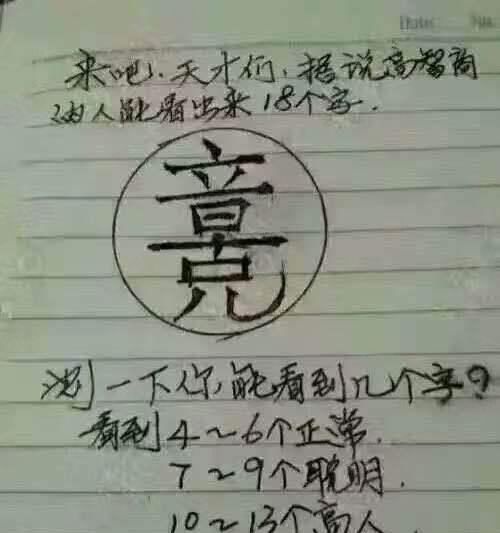 Date No.
来吧、天才们、据说高智商
的人能看出来18个字.
测一下你能看到几个字?
看到4~6个正常.
7~9个聪明.
10~13个高人